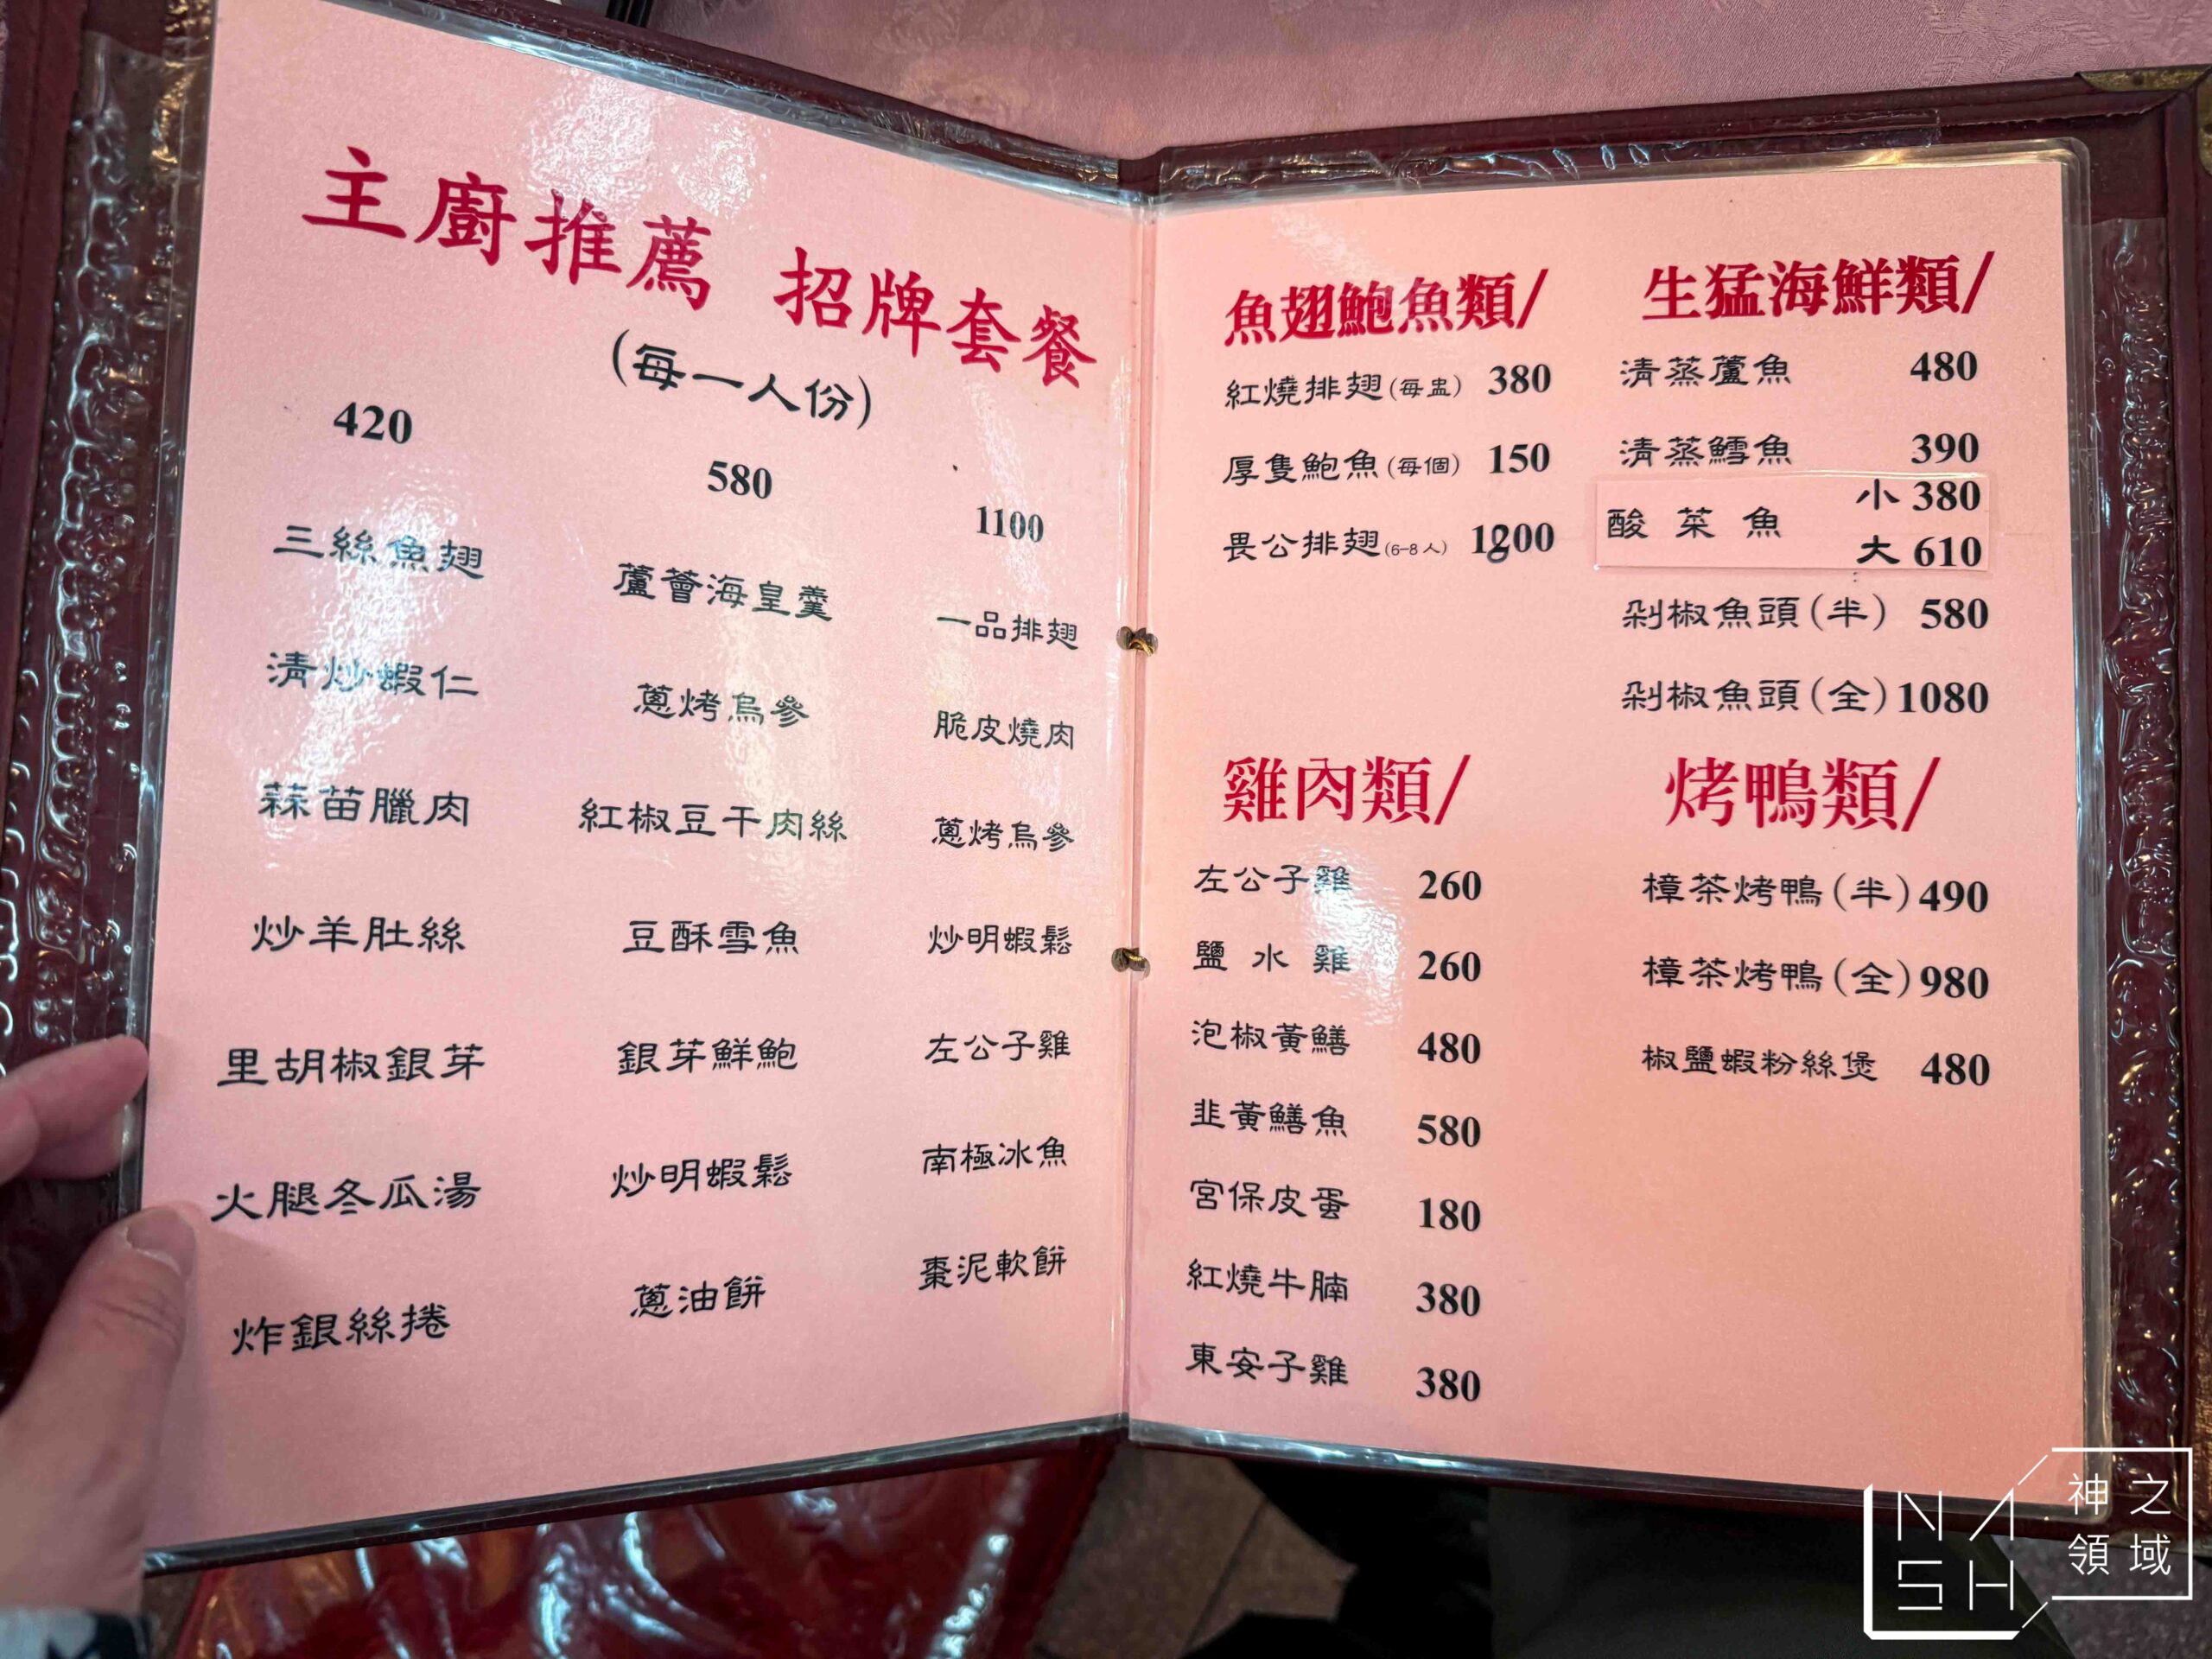 主廚推薦 招牌套餐
(每一人份)
420
三絲魚翅
清炒蝦仁
蒜苗臘肉
炒羊肚絲
里胡椒銀芽
火腿冬瓜湯
炸銀絲捲
580
蘆薈海皇羹
蔥烤烏參
紅椒豆干肉絲
豆酥雪魚
銀芽鮮鮑
炒明蝦鬆
蔥油餅
1100
一品排翅
脆皮燒肉
蔥烤烏參
炒明蝦鬆
左公子雞
南極冰魚
棗泥軟餅
魚翅鮑魚類/
紅燒排翅(每盅) 380
厚隻鮑魚(每個) 150
畏公排翅(6-8人) 1800
生猛海鮮類/
清蒸蘆魚 480
清蒸鱈魚 390
酸菜魚 小 380
大 610
剁椒魚頭(半) 580
剁椒魚頭(全) 1080
雞肉類/
左公子雞 260
鹽水雞 260
泡椒黃鱔 480
韭黃鱔魚 580
宮保皮蛋 180
紅燒牛腩 380
東安子雞 380
烤鴨類/
樟茶烤鴨(半) 490
樟茶烤鴨(全) 980
椒鹽蝦粉絲煲 480
NASH
神之領域